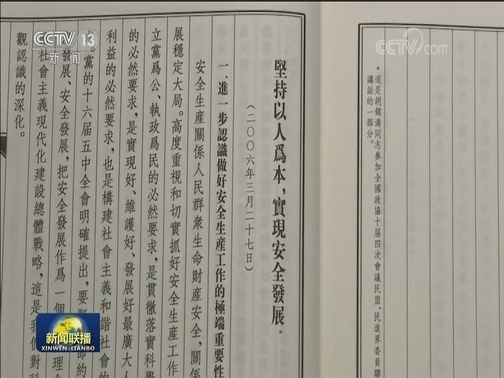 CCTV 13
新闻
CCTV.com
*這是胡錦濤同志參加全國政協十届四次會議民盟、民進界委員聯
講話的一部分。
堅持以人爲本,實現安全發展*
(二〇〇六年三月二十七日)
一、進一步認識做好安全生產工作的極端重要性
安全生產關係人民群衆生命財產安全,關係
展穩定大局。高度重視和切實抓好安全生產工作
立黨爲公、執政爲民的必然要求,是貫徹落實科學
的必然要求,是實現好、維護好、發展好最廣大人
利益的必然要求,也是構建社會主義和諧社會的
。黨的十六届五中全會明確提出,要 節約
發展、安全發展,把安全發展作爲一個 理念
社會主義現代化建設總體戰略,這是我 對科
觀認識的深化。
新闻联播
XINWEN LIANBO